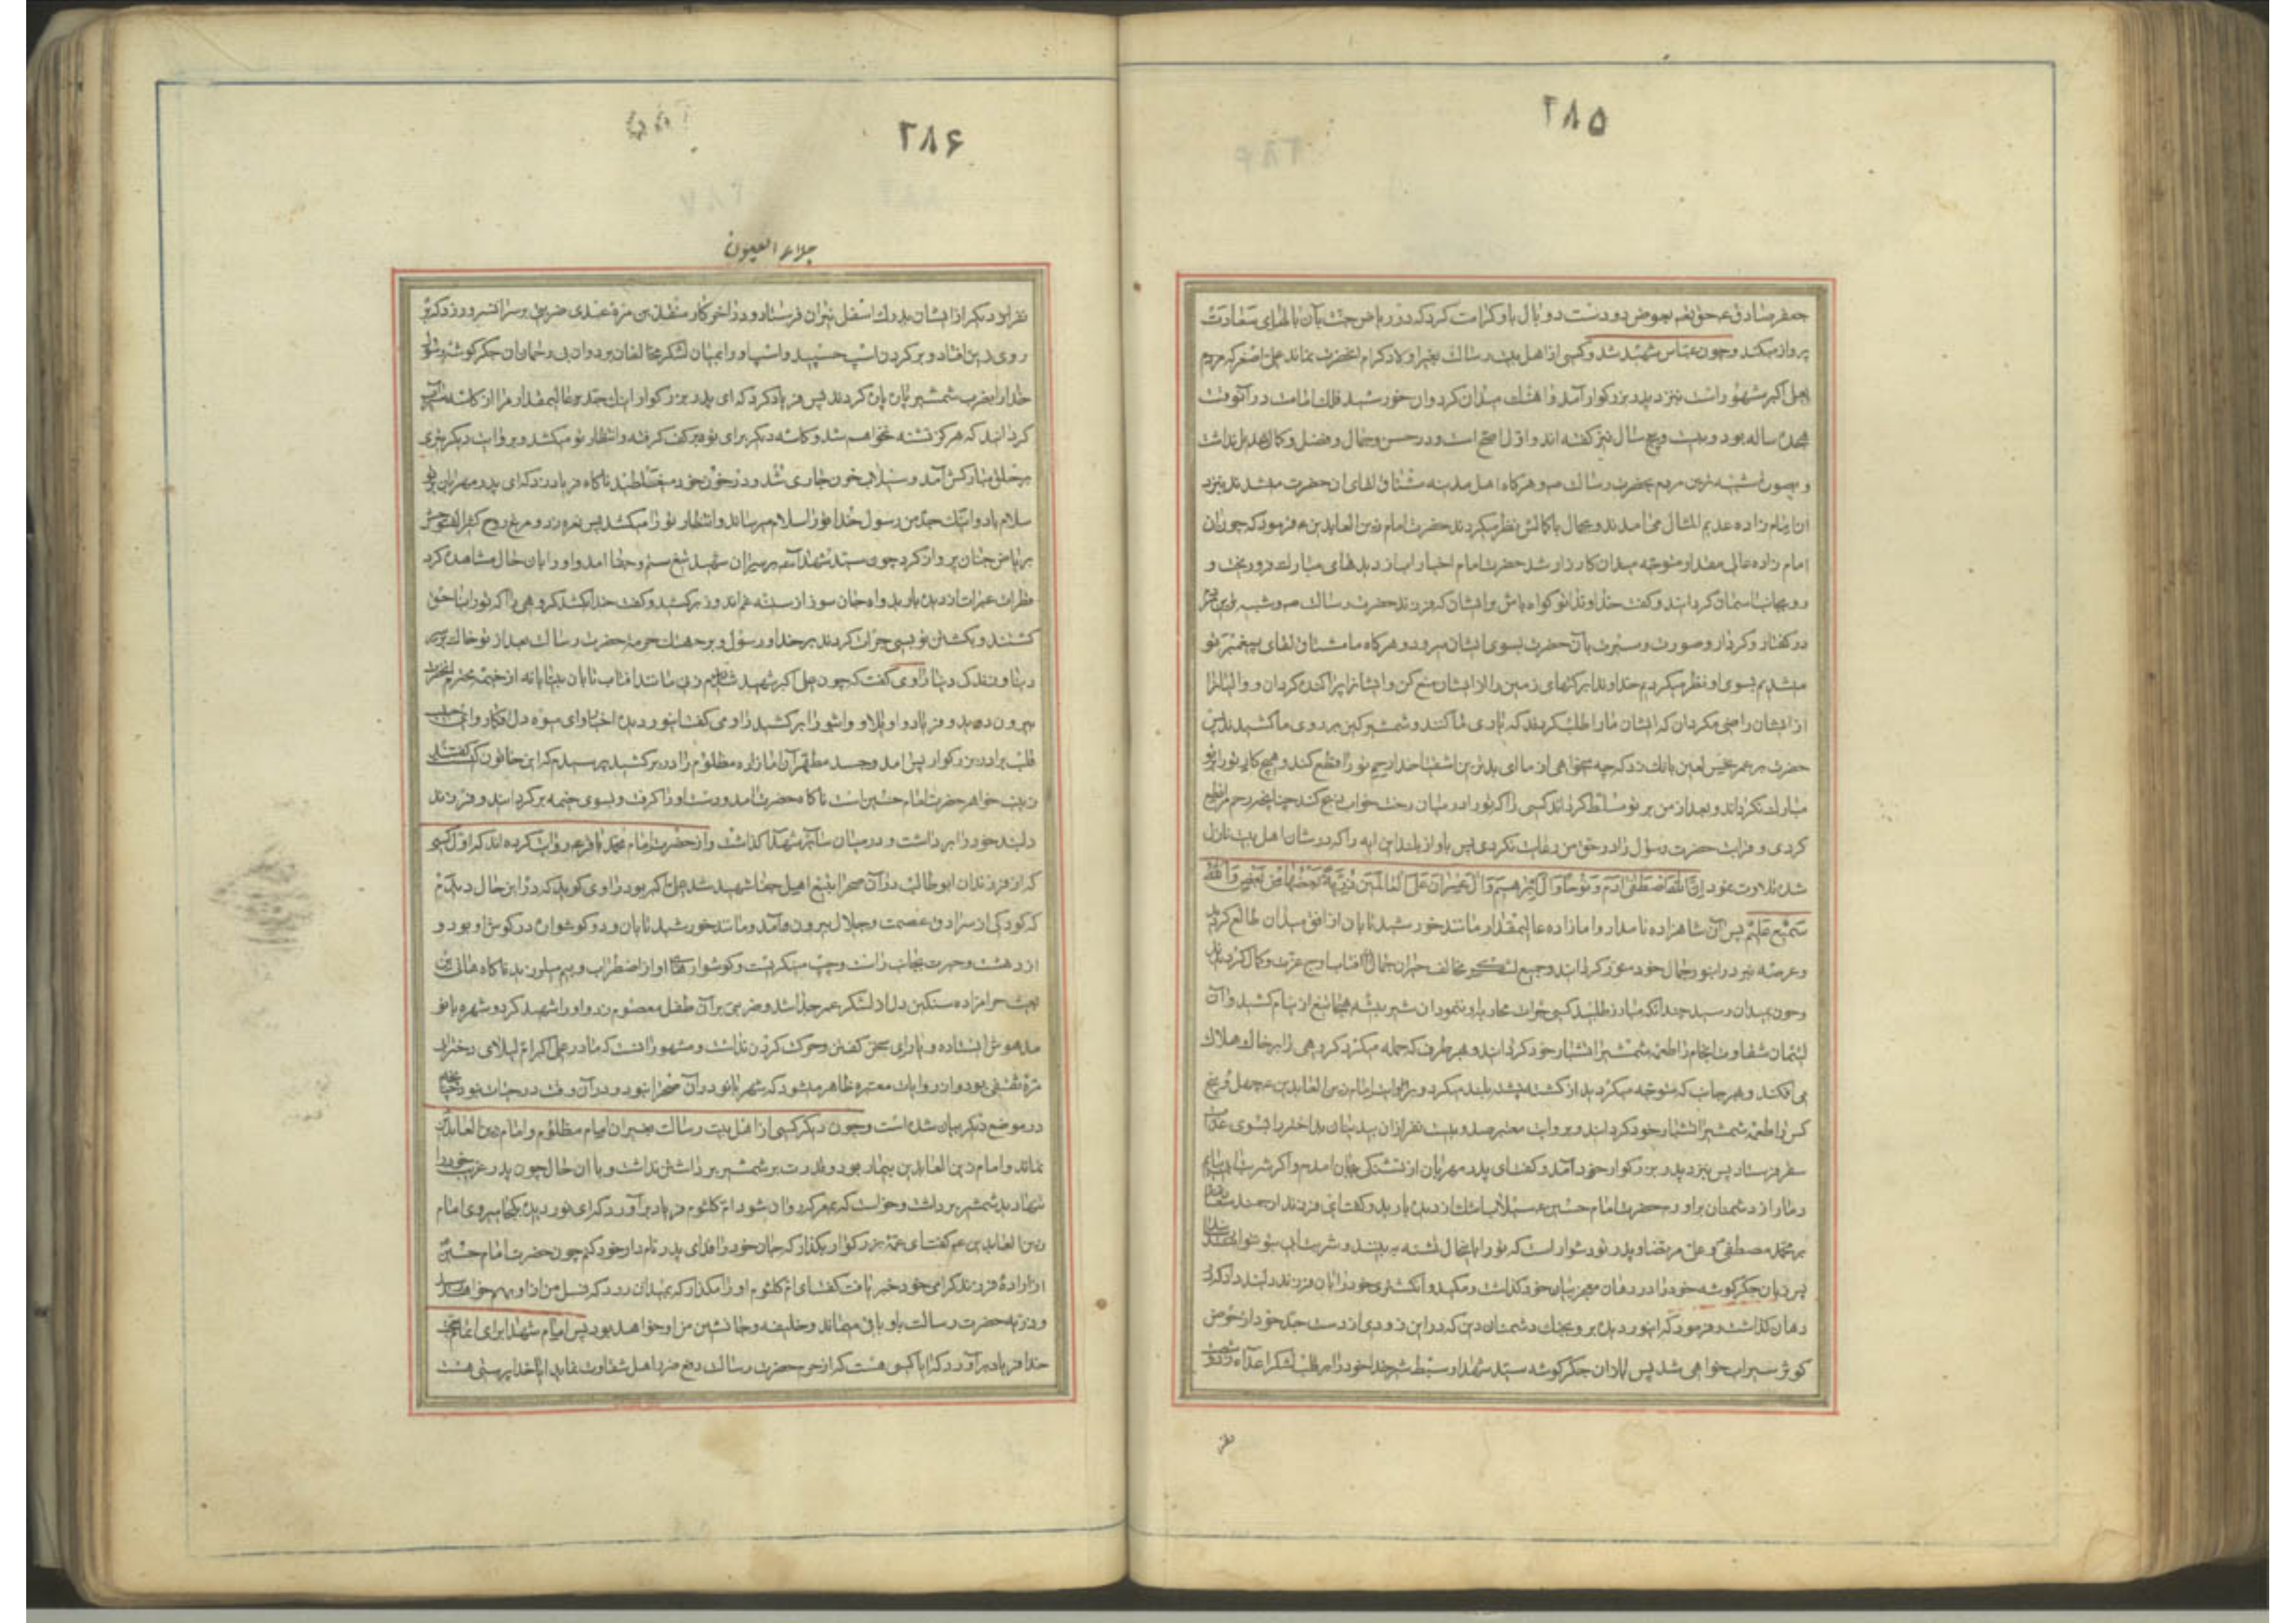 ۲۸۵
جعفر صادق ع حق تعالی بعوض دو دست دو بال باو کرامت کرد که در ریاض جنت بآن بالهای سعادت
پرواز میکند و چون عباس شهید شد و کسی از اهل بیت رسالت بغیر اولاد کرام آنحضرت نماند علی اصغر که مردم
بعلی اکبر مشهور است نیز نزد پدر بزرگوار آمد و آهنگ میدان کرد و آن خورشید فلک امامت در آنوقت
هجده ساله بود و بیست و پنج سال نیز گفته اند و اول اصح است و در حسن و جمال و فضل و کمال عدیل نداشت
و بصورت شبیه ترین مردم بحضرت رسالت ص و هرگاه اهل مدینه مشتاق لقای آن حضرت میشدند بنزد
آن امام زاده عدیم المثال می آمدند و بجمال باکمالش نظر میکردند حضرت امام زین العابدین ع فرمود که چون آن
امام زاده عالی مقدار متوجه میدان کارزار شد حضرت امام اخیار آب از دیدهای مبارک فرو ریخت و
رو بجانب آسمان گردانید و گفت خداوندا تو گواه باش بر ایشان که فرزند حضرت رسالت ص و شبیه ترین مردم
در گفتار و کردار و صورت و سیرت بآن حضرت بسوی ایشان میرود و هرگاه ما مشتاق لقای پیغمبر تو
میشدیم بسوی او نظر میکردیم خداوندا برکتهای زمین را از ایشان منع کن و ایشانرا پراکنده گردان و والیانرا
از ایشان راضی مگردان که ایشان ما را طلب کردند که یاری ما کنند و شمشیر کین بر روی ما کشیدند پس
حضرت بر عمر نحس لعین بانک زد که چه میخواهی از ما ای بدترین اشقیا خدا رحم تو را قطع کند و هیچ کار تو را بر تو
مبارک نگرداند و بعد از من بر تو مسلط گرداند کسی را که تو را در میان رخت خواب ذبح کند چنانچه رحم مرا قطع
کردی و قرابت حضرت رسول را در حق من رعایت نکردی پس باواز بلند این آیه را که در شان اهل بیت نازل
شده تلاوت نمود إِنَّ اللهَ اصْطَفَى آدَمَ وَنُوحاً وَآلَ إِبْرَاهِيمَ وَآلَ عِمْرَانَ عَلَى الْعَالَمِينَ ذُرِّيَّةً بَعْضُهَا مِنْ بَعْضٍ وَاللهُ
سَمِيعٌ عَلِيمٌ پس آن شاهزاده نامدار و امام زاده عالیمقدار مانند خورشید تابان از افق میدان طالع گردید
و عرصه نبرد را بنور جمال خود منور گردانید و جمیع لشکر مخالف حیران جمال آن آفتاب اوج عزت و کمال گردیدند
و چون بمیدان رسید چندانکه مبارز طلبید کسی جرات محاربه او ننمود آن شیر بیشه هیجا تیغ از نیام کشید و آن
لئیمان شقاوت انجام را طعمه شمشیر آتشبار خود گردانید و بهر طرف که حمله میکرد گروهی را بر خاک هلاک
می افکند و بهر جانب که متوجه میگردید از کشته پشته بلند میکرد و بروایت امام زین العابدین ع چهل و چهار
کس را طعمه شمشیر آتشبار خود گردانید و بروایت معتبر صد و بیست نفر از آن بددینان بداختر را بسوی عذاب
سقر فرستاد پس بنزد پدر بزرگوار خود آمد و گفت ای پدر مهربان از تشنگی بجان آمدم و اگر شربت آبی بیابم
دمار از دشمنان برآورم حضرت امام حسین ع سیلاب اشک از دیده بارید و گفت ای فرزند ارجمند سعادتمند
بر محمد مصطفی و علی مرتضا و پدر تو دشوار است که تو را باینحال تشنه به بینند و شربت آب بتو نتوانند رساند
پس زبان جگرگوشه خود را در دهان معجز بیان خود گذاشت و مکید و انگشتری خود را بآن فرزند دلبند داد که در
دهان گذاشت و فرمود که ای نور دیده برو بجنک دشمنان دین که در این زودی از دست جد خود از حوض
کوثر سیراب خواهی شد پس آن جگرگوشه سید شهدا و سبط شیر خدا خود را بر قلب لشکر اعدا زد و
۲۸۶
جلاء العیون
نفر را بود دیگر از ایشان بدرک اسفل نیران فرستاد و در آخر کار منقذ بن مره عبدی ضربتی بر سر آن سرور زد که بر
روی زین افتاد و بر گردن اسب چسپید و اسپ او را بمیان لشکر مخالفان برد و آن بی رحمان جگرگوشه رسول
خدا را بضرب شمشیر پاره پاره کردند پس فریاد کرد که ای پدر بزرگوار اینک جد عالیمقدار مرا از کاسه سیراب
گردانید که هرگز تشنه نخواهم شد و کاسه دیگر برای تو بر کف گرفته و انتظار تو میکشد و بروایت دیگر تیری
بر حلق مبارکش آمد و سیلاب خون جاری شد و در خون خود میغلطید ناگاه فریاد زد که ای پدر مهربان بر تو
سلام باد و اینک جدم رسول خدا تو را سلام میرساند و انتظار تو را میکشد پس نعره زد و مرغ روح کثیر الفتوحش
بریاض جنان پرواز کرد چون سید شهدا ع بر سر آن شهید تیغ ستم و جفا آمد و او را بآن حال مشاهده کرد
قطرات عبرات از دیده بارید و آه جان سوز از سینه غم اندوز برکشید و گفت خدا بکشد گروهی را که تو را بناحق
کشتند و بکشتن تو بسی جرات کردند بر خدا و رسول و بر هتک حرمت حضرت رسالت بعد از تو خاک بر سر
دنیا و زندگی دنیا راوی گفت که چون علی اکبر شهید شد دیدم زنی مانند آفتاب تابان بیتابانه از خیمه محترم آنحضرت
بیرون دوید و فریاد واویلاه و واثبوراه برکشید و می گفت ای نور دیده اخیار و ای میوه دل افکار و ای حبیب
قلب برادر بزرگوار پس آمد و جسد مطهر آن امام زاده مظلوم را در بر کشید پرسیدم که این خاتون کیست گفتند
زینب خواهر حضرت امام حسین است ناگاه حضرت آمد و دست او را گرفت و بسوی خیمه برگردانید و فرزند
دلبند خود را برداشت و در میان سایر شهدا گذاشت و از حضرت امام محمد باقر ع روایت کرده اند که اول کسی
که از فرزندان ابوطالب در آن صحرا بتیغ اهل جفا شهید شد علی اکبر بود راوی گوید که در این حال دیدم
که کودکی از سرادق عصمت و جلال بیرون آمد و مانند خورشید تابان و دو گوشواره در گوش او بود و
از دهشت و حیرت بجانب راست و چپ مینگریست و گوشوارهای او از اضطراب و بیم میلرزید ناگاه هانی بن
ثبیت حرام زاده سنگین دل از لشکر عمر جدا شد و ضربتی بر آن طفل معصوم زد و او را شهید کرد و شهربانو
مدهوش ایستاده و یارای سخن گفتن و حرکت کردن نداشت و مشهور آنست که مادر علی اکبر ام لیلای دختر ابی
مره ثقفی بود و از روایات معتبره ظاهر میشود که شهربانو در آن صحرا نبود و در آن وقت در حیات نبود چنانچه
در موضع دیگر بیان شده است و چون دیگر کسی از اهل بیت رسالت بغیر از امام مظلوم و امام زین العابدین
نماند و امام زین العابدین بیمار بود و قدرت بر شمشیر برداشتن نداشت و با آن حال چون پدر غریب خود را
تنها دید شمشیر برداشت و خواست که بمعرکه روان شود ام کلثوم فریاد برآورد که ای نور دیده بکجا میروی امام
زین العابدین ع گفت ای عمه بزرگوار بگذار که جان خود را فدای پدر نامدار خود کنم چون حضرت امام حسین
از اراده فرزند گرامی خود خبر یافت گفت ای ام کلثوم او را مگذار که بمیدان رود که نسل من از او بهم خواهد رسید
و ذریه حضرت رسالت باو باقی میماند و خلیفه و جانشین من او خواهد بود پس امام شهدا برای اتمام حجت
خدا فریاد برآورد که آیا کسی هست که از حرم حضرت رسالت دفع ضرر اهل شقاوت نماید آیا خدا پرستی هست